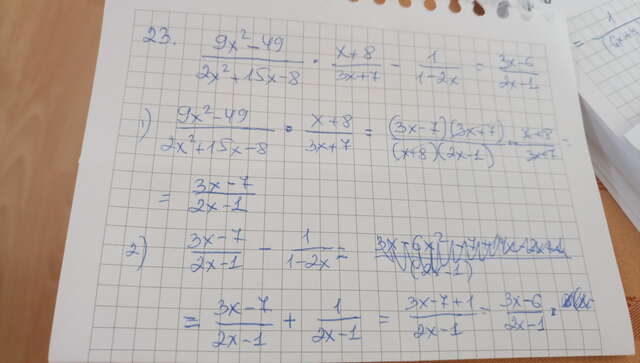 23. (9x²-49)/(2x²+15x-8) · (x+8)/(3x+7) - 1/(1-2x) = (3x-6)/(2x-1)
1) (9x²-49)/(2x²+15x-8) · (x+8)/(3x+7) = ((3x-7)(3x+7))/((x+8)(2x-1)) · (x+8)/(3x+7) =
= (3x-7)/(2x-1)
2) (3x-7)/(2x-1) - 1/(1-2x) =
= (3x-7)/(2x-1) + 1/(2x-1) = (3x-7+1)/(2x-1) = (3x-6)/(2x-1).